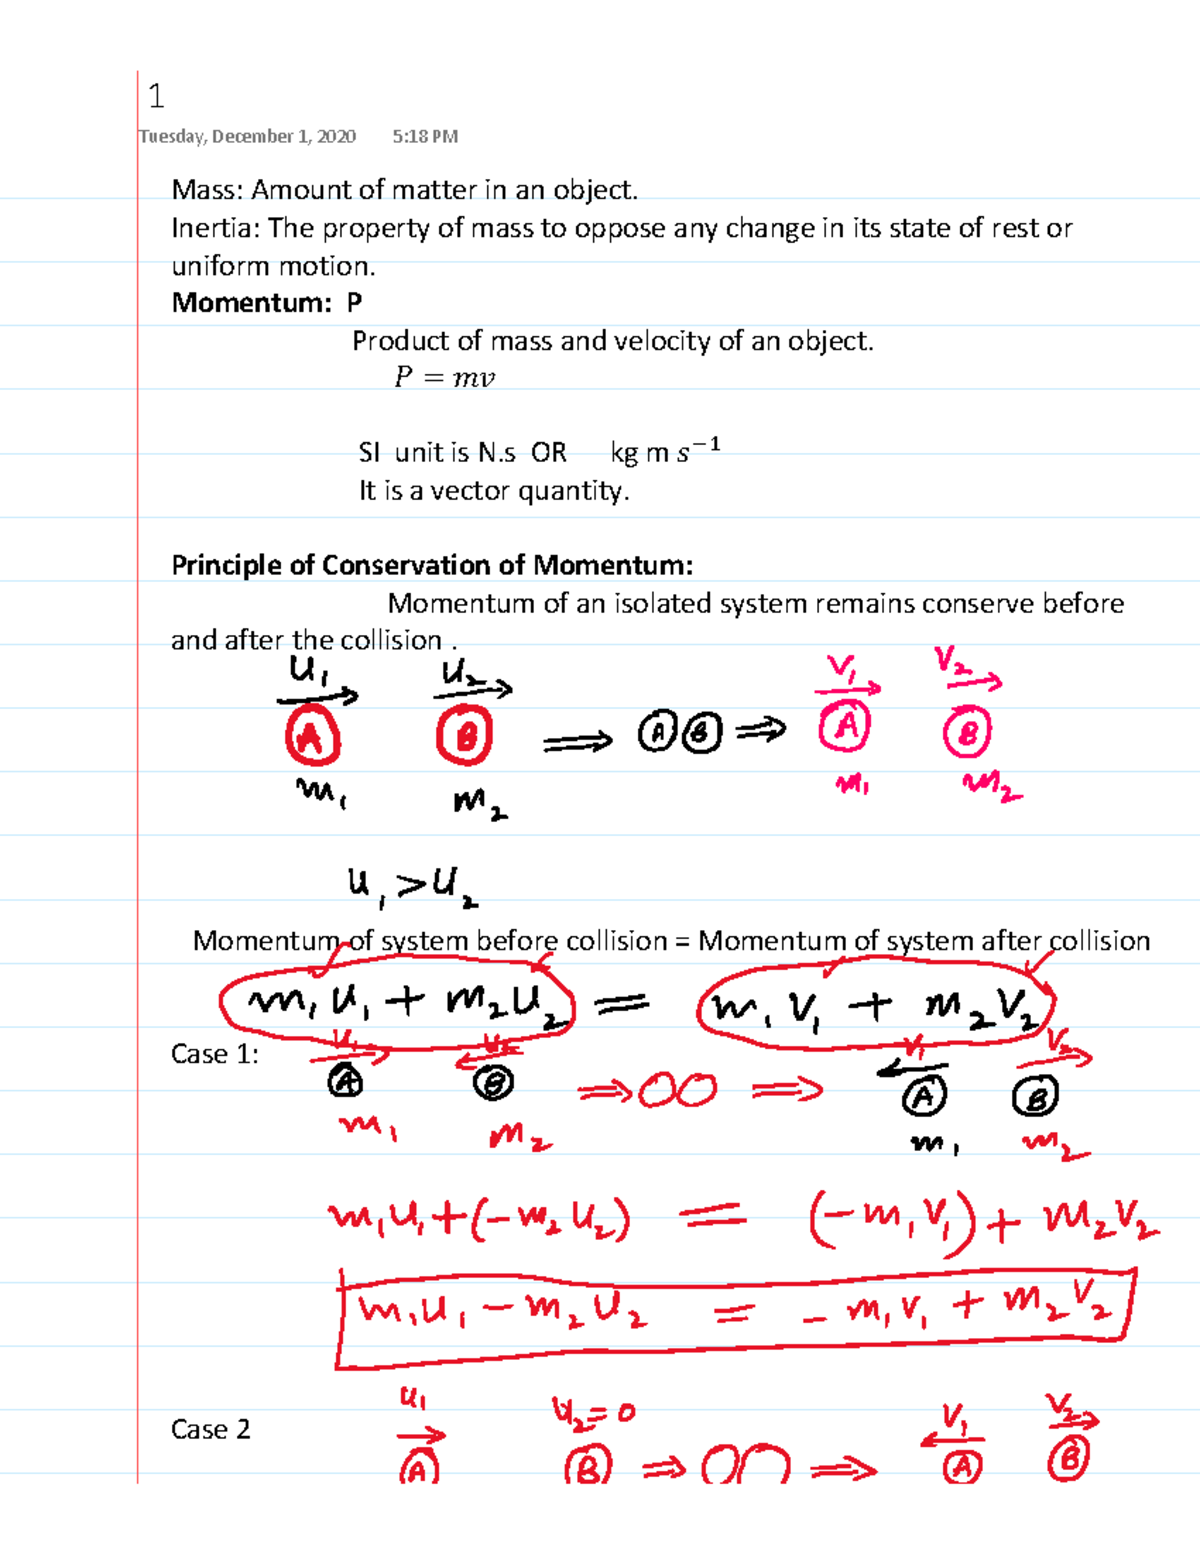 1
Tuesday, December 1, 2020 5:18 PM
Mass: Amount of matter in an object.
Inertia: The property of mass to oppose any change in its state of rest or
uniform motion.
Momentum: P
Product of mass and velocity of an object.
P = mv
SI unit is N.s OR kg m s⁻¹
It is a vector quantity.
Principle of Conservation of Momentum:
Momentum of an isolated system remains conserve before
and after the collision .
u₁ u₂ v₁ v₂
A B ⇒ A B ⇒ A B
m₁ m₂ m₁ m₂
u₁ > u₂
Momentum of system before collision = Momentum of system after collision
m₁u₁ + m₂u₂ = m₁v₁ + m₂v₂
Case 1:
v₁ v₂ v₁ v₂
A B ⇒ ⇒ A B
m₁ m₂ m₁ m₂
m₁u₁+(-m₂u₂) = (-m₁v₁)+m₂v₂
m₁u₁ - m₂u₂ = - m₁v₁ + m₂v₂
u₁ u₂=0 v₁ v₂
Case 2
A B ⇒ ⇒ A B